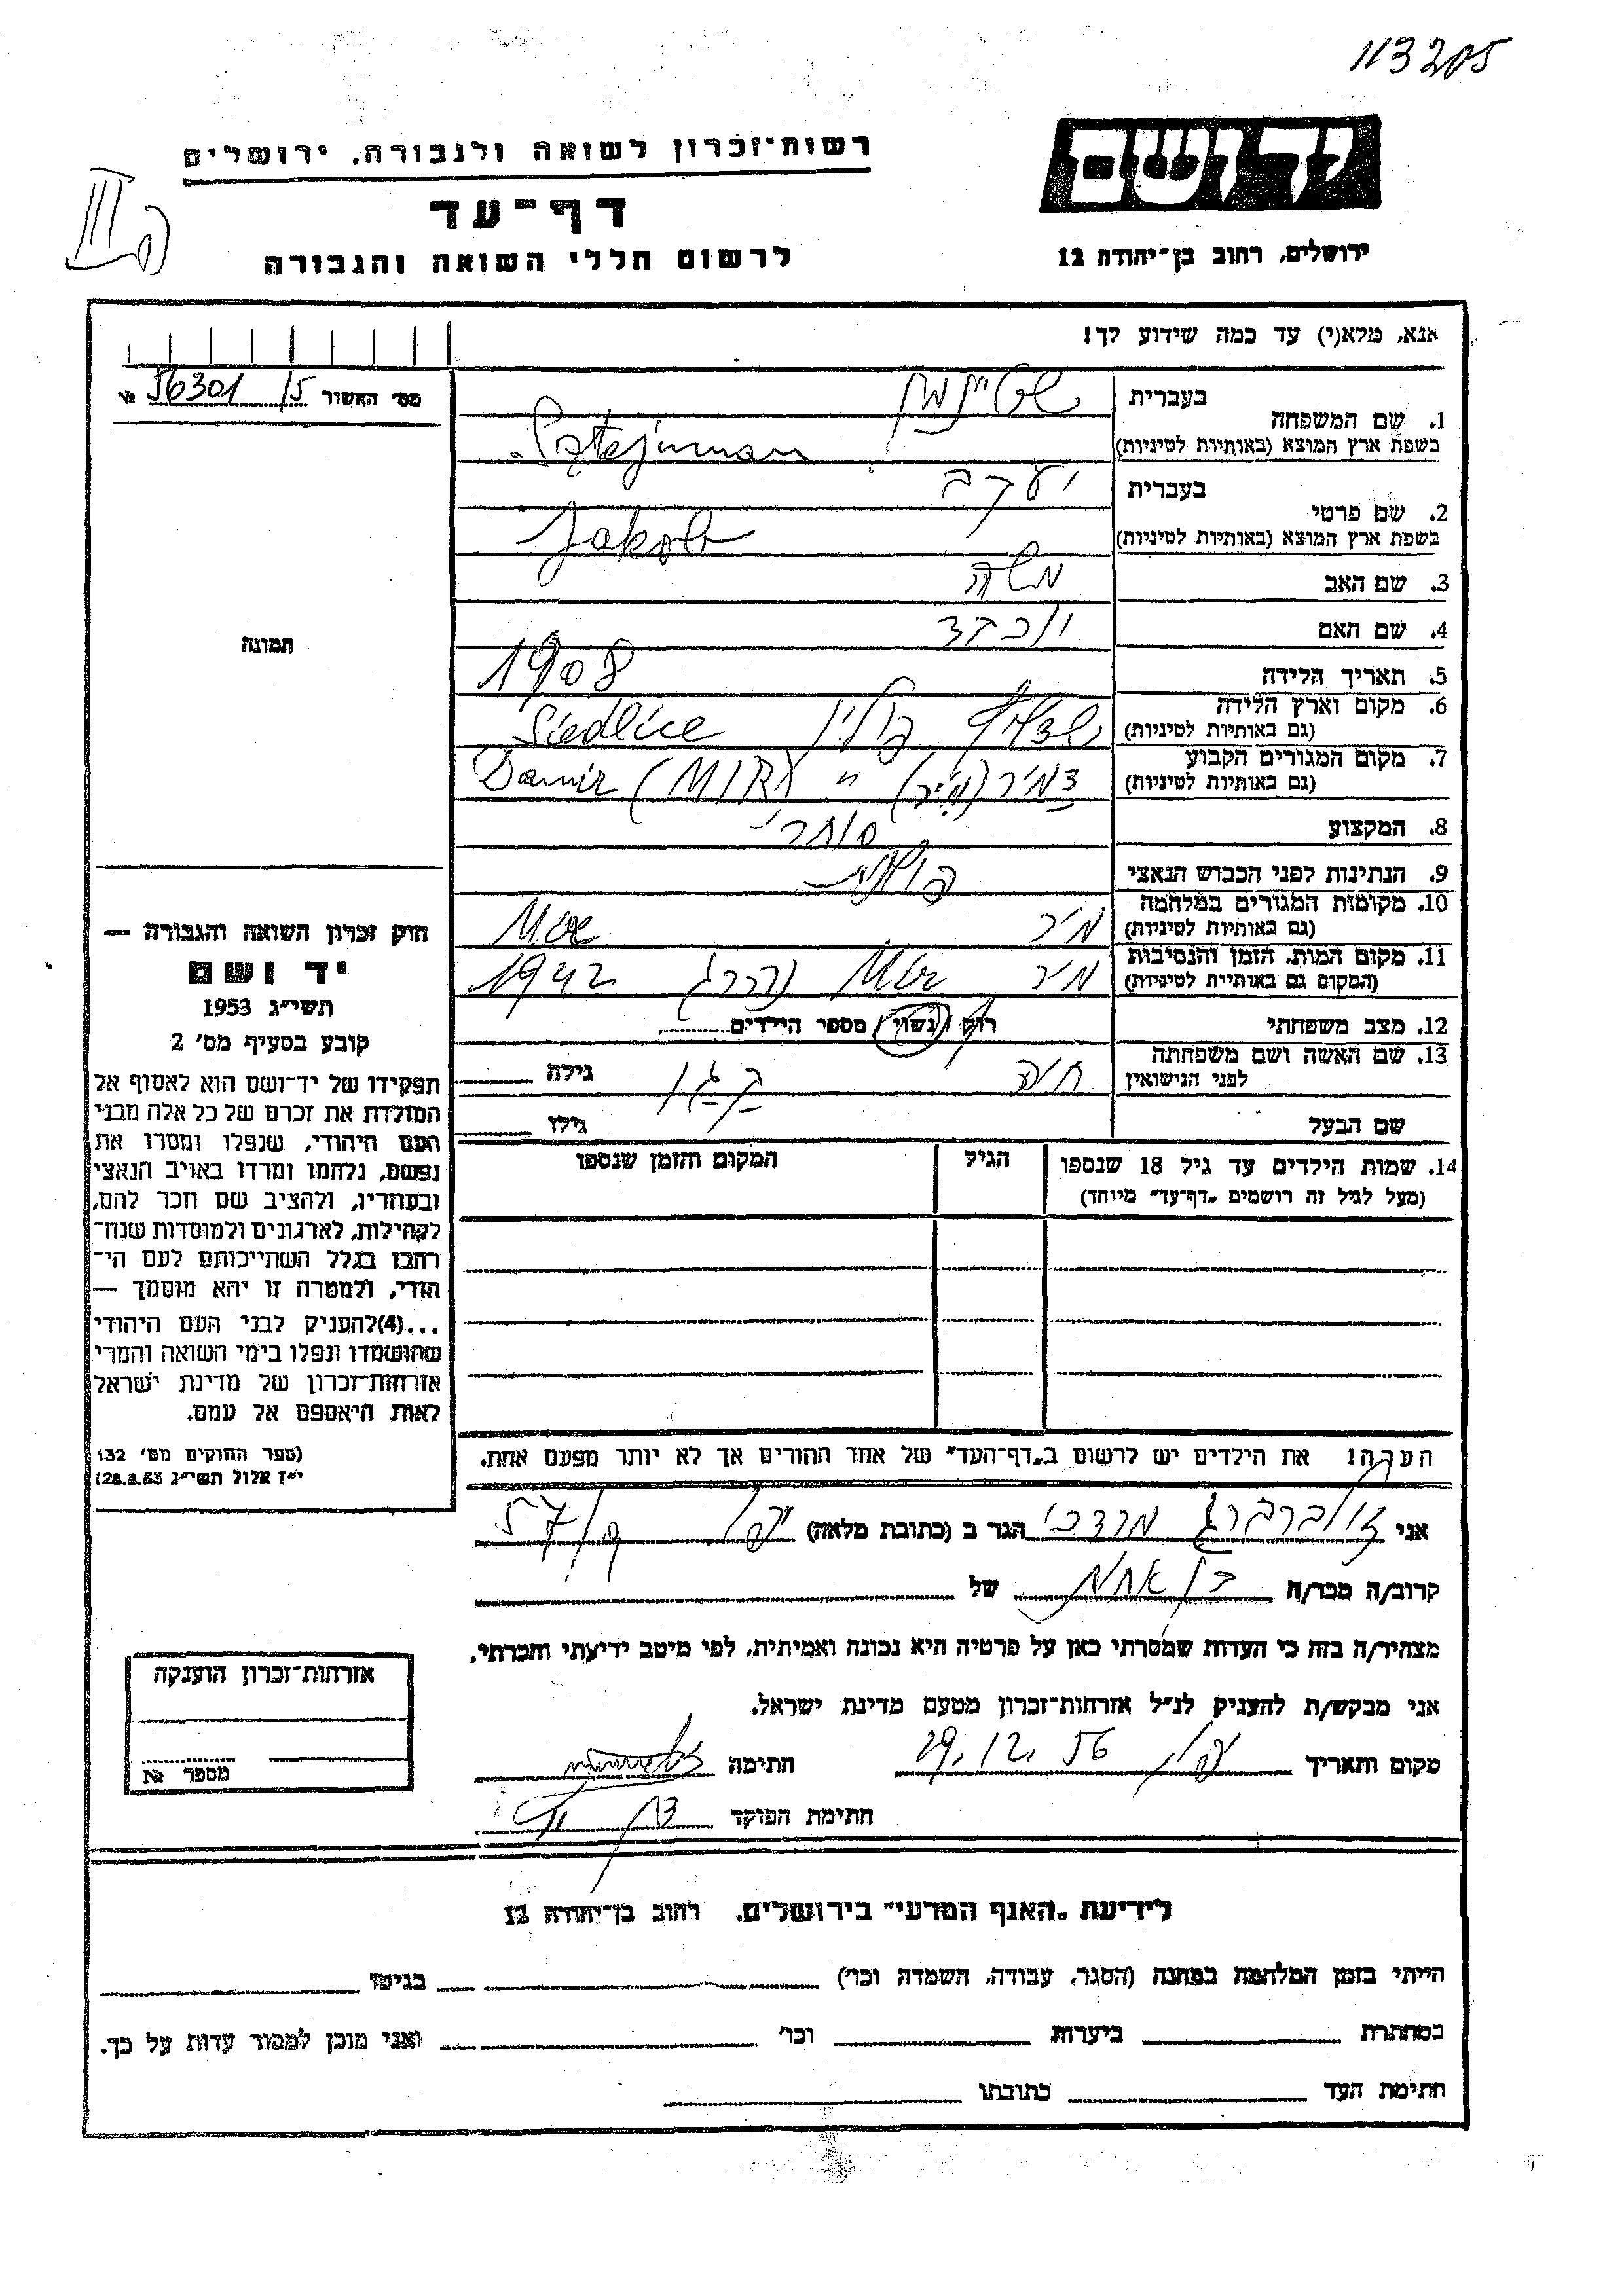 113205
יד ושם
רשות־זכרון לשואה ולגבורה, ירושלים
דף־עד
לרשום חללי השואה והגבורה
ירושלים, רחוב בן־יהודה 12
אנא, מלא(י) עד כמה שידוע לך!
מס׳ האשור 56301/5 №
1. שם המשפחה בעברית שטיינמן
בשפת ארץ המוצא (באותיות לטיניות) Sztejnman
2. שם פרטי בעברית יעקב
בשפת ארץ המוצא (באותיות לטיניות) Jakob
3. שם האב משה
4. שם האם יוכבד
5. תאריך הלידה 1908
6. מקום וארץ הלידה פולין Siedlice
(גם באותיות לטיניות)
7. מקום המגורים הקבוע (מיר) " (MIR)
(גם באותיות לטיניות)
8. המקצוע סוחר
9. הנתינות לפני הכבוש הנאצי פולנית
10. מקומות המגורים במלחמה מיר Mir
(גם באותיות לטיניות)
11. מקום המות, הזמן והנסיבות מיר Mir נהרג 1942
(המקום גם באותיות לטיניות)
12. מצב משפחתי רווק / נשוי / מספר הילדים
13. שם האשה ושם משפחתה חיה גילה
לפני הנישואין
שם הבעל גילו
14. שמות הילדים עד גיל 18 שנספו הגיל המקום והזמן שנספו
(מעל לגיל זה רושמים „דף־עד״ מיוחד)
הערה! את הילדים יש לרשום ב„דף־העד״ של אחד ההורים אך לא יותר מפעם אחת.
תמונה
חוק זכרון השואה והגבורה —
יד ושם
תשי״ג 1953
קובע בסעיף מס׳ 2
תפקידו של יד־ושם הוא לאסוף אל
המולדת את זכרם של כל אלה מבני
העם היהודי, שנפלו ומסרו את
נפשם, נלחמו ומרדו באויב הנאצי
ובעוזריו, ולהציב שם וזכר להם,
לקהילות, לארגונים ולמוסדות שנח־
רבו בגלל השתייכותם לעם הי־
הודי, ולמטרה זו יהא מוסמך —
...(4)להעניק לבני העם היהודי
שהושמדו ונפלו בימי השואה והמרי
אזרחות־זכרון של מדינת ישראל
לאות היאספם אל עמם.
(ספר החוקים מס׳ 132
י״ז אלול תשי״ג 28.8.53)
אני זילברברג מרדכי הגר ב (כתובת מלאה) יפו 57
קרוב/ה מכר/ה בן אחות של
מצהיר/ה בזה כי העדות שמסרתי כאן על פרטיה היא נכונה ואמיתית, לפי מיטב ידיעתי והכרתי.
אני מבקש/ת להעניק לנ״ל אזרחות־זכרון מטעם מדינת ישראל.
מקום ותאריך 19.12.56 חתימה
חתימת הפוקד
אזרחות־זכרון הוענקה
מספר №
לידיעת „האגף המדעי״ בירושלים, רחוב בן־יהודה 12
הייתי בזמן המלחמה במחנה (הסגר, עבודה, השמדה וכו׳) בגיטו
במחתרת ביערות וכו׳ ואני מוכן למסור עדות על כך.
חתימת העד כתובתו